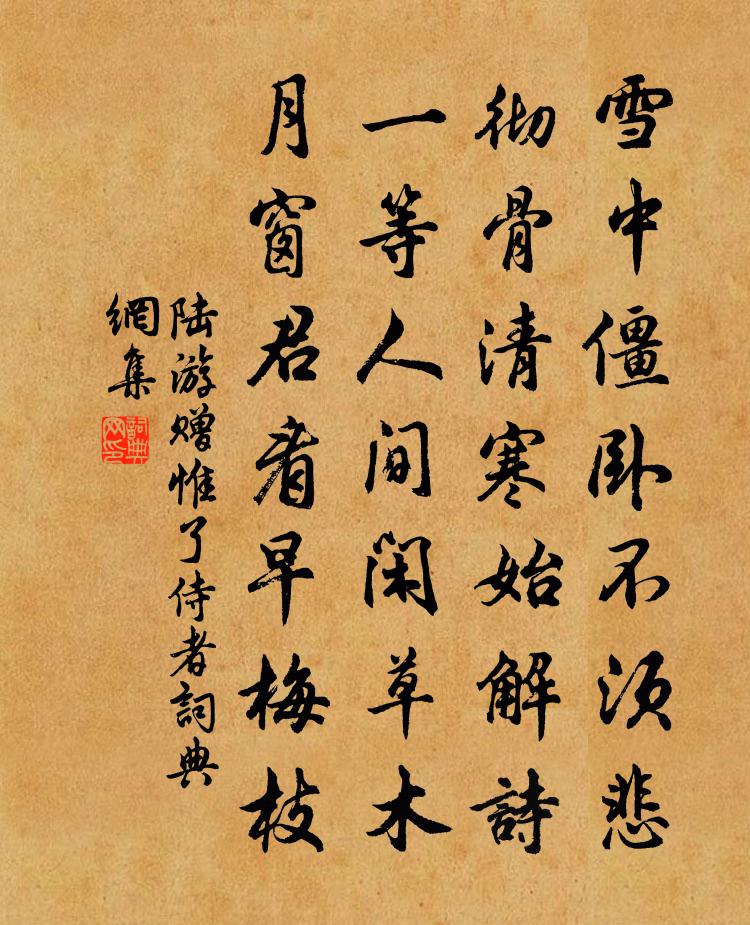 雪中僵卧不须悲
彻骨清寒始解詩
一等人间闲草木
月窗君看早梅枝
陆游赠惟了侍者詞典
網集
詞典
网印